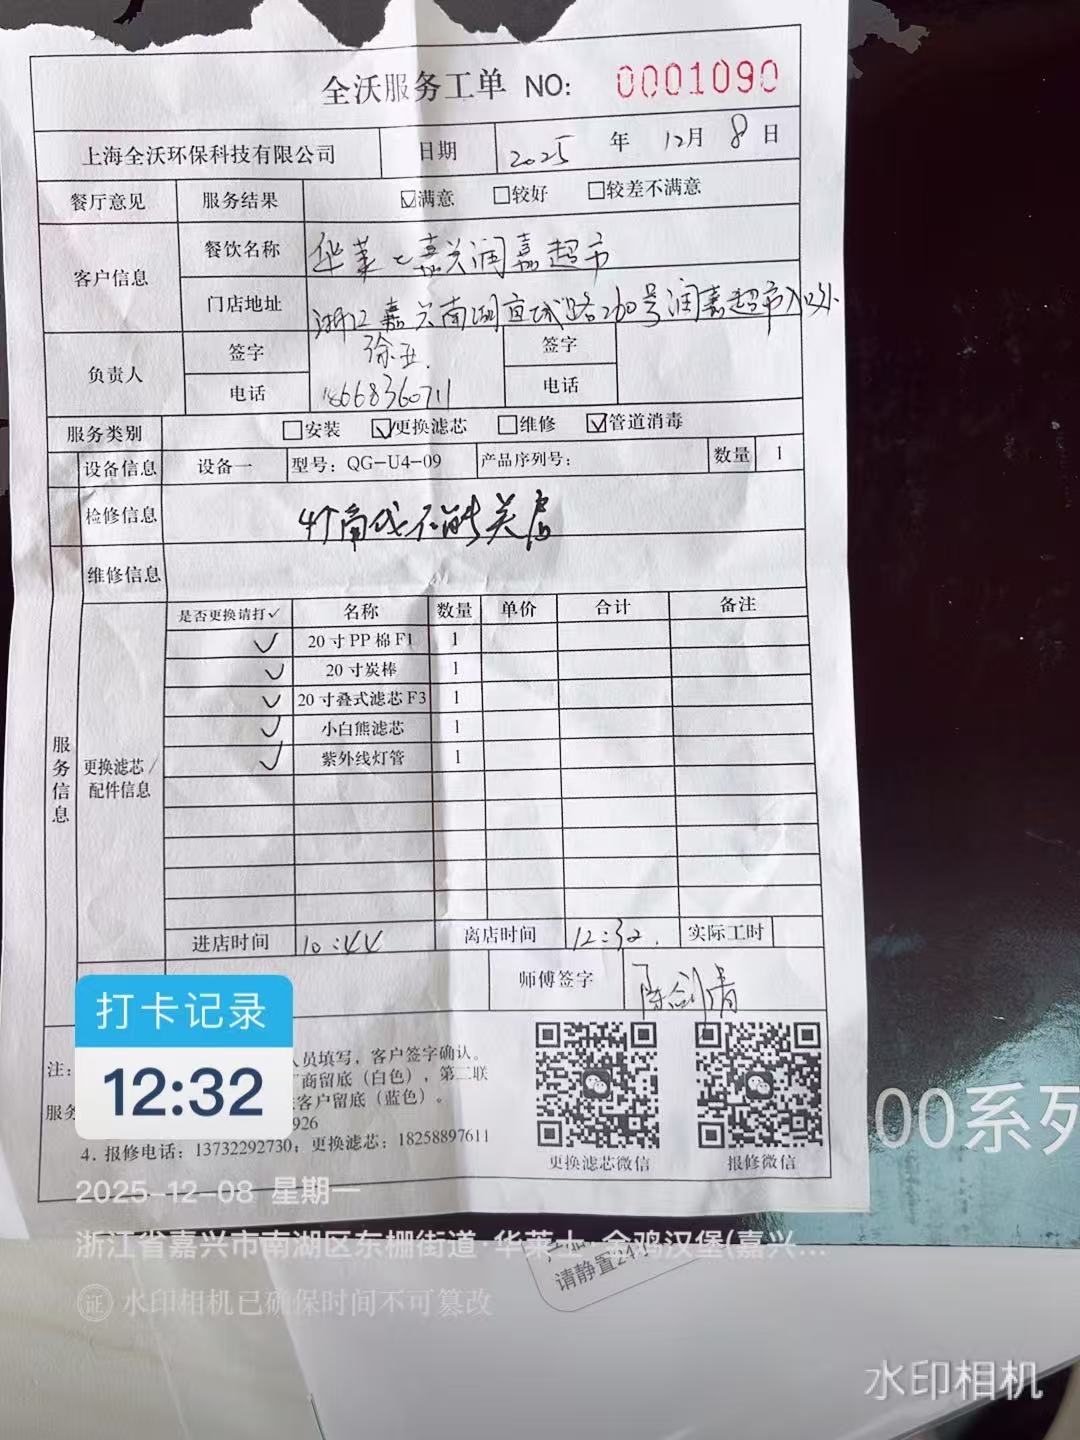 全沃服务工单 NO: 0001090
上海全沃环保科技有限公司 日期 2025 年 12月 8日
餐厅意见 服务结果 ☑满意 □较好 □较差不满意
客户信息 餐饮名称 华莱士嘉兴润嘉超市
门店地址 浙江嘉兴南湖区 路 号润嘉超市入口外
负责人 签字 徐 签字
电话 电话
服务类别 □安装 ☑更换滤芯 □维修 ☑管道消毒
设备信息 设备一 型号: QG-U4-09 产品序列号: 数量 1
检修信息 不能关
维修信息
是否更换请打✓ 名称 数量 单价 合计 备注
✓ 20寸PP棉F1 1
✓ 20寸炭棒 1
✓ 20寸叠式滤芯F3 1
✓ 小白熊滤芯 1
✓ 紫外线灯管 1
服务信息
更换滤芯/
配件信息
进店时间 10:44 离店时间 12:32. 实际工时
师傅签字 陈剑清
打卡记录
12:32
注: 人员填写，客户签字确认。
商留底（白色），第二联
服务 客户留底（蓝色）。
926
4. 报修电话: 13732292730; 更换滤芯: 18258897611
更换滤芯微信 报修微信
00系列
2025-12-08 星期一
浙江省嘉兴市南湖区东栅街道·华莱士·全鸡汉堡(嘉兴...
请静置24
证 水印相机已确保时间不可篡改
水印相机